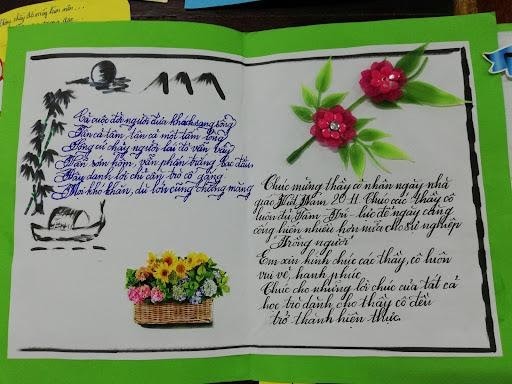 Cả cuộc đời người đưa khách sang sông
cả tâm, cả một tấm lòng
Sông cứ chảy người lái đò vẫn vậy
Vẫn sớm hôm, vẫn phấn trắng bạc đầu
chỉ cần trò cố gắng
Mọi khó khăn, dù lớn cũng chẳng màng
Chúc mừng thầy cô nhân ngày nhà
giáo Việt Nam 20.11. Chúc các thầy cô
luôn đủ Tâm - Trí - lực để ngày càng
cống hiến nhiều hơn nữa cho sự nghiệp
"Trồng người"
Em xin kính chúc các thầy, cô luôn
vui vẻ, hạnh phúc.
Chúc cho những lời chúc của tất cả
học trò dành cho thầy cô đều
trở thành hiện thực.